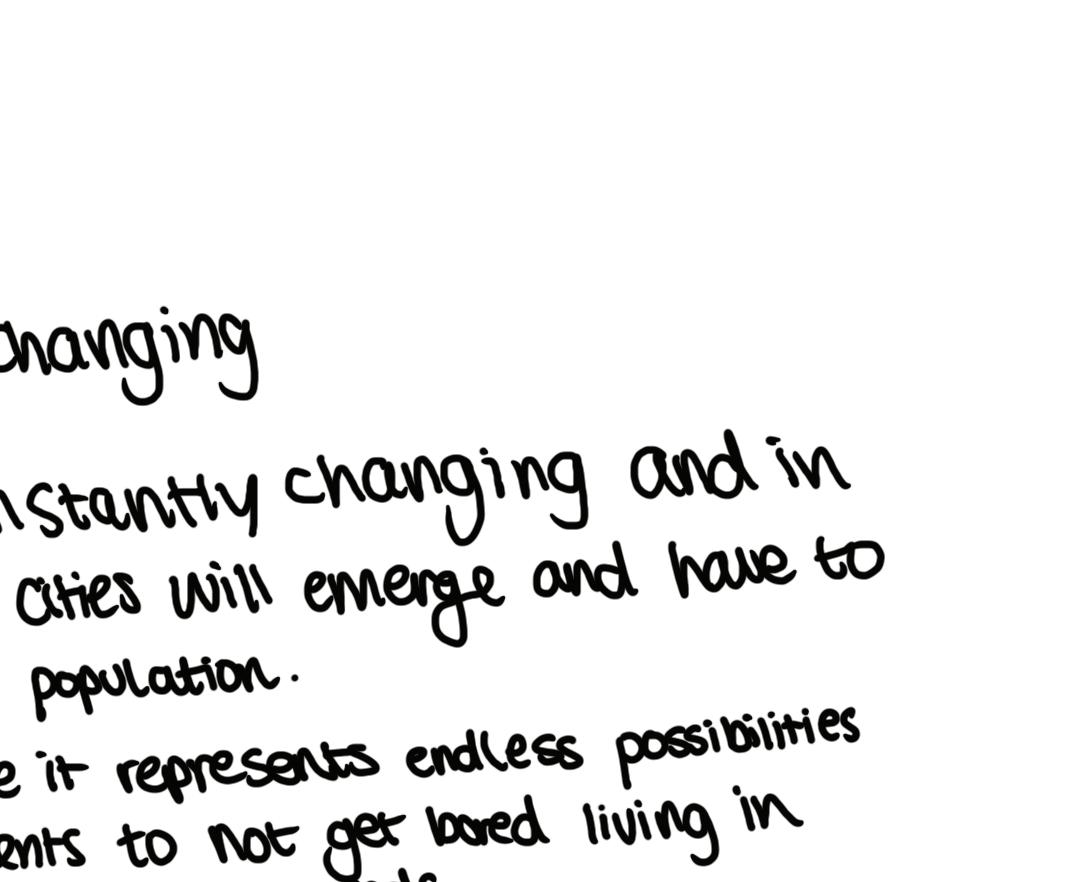 changing
nstantly changing and in
cities will emerge and have to
population.
e it represents endless possibilities
ents to not get bored living in